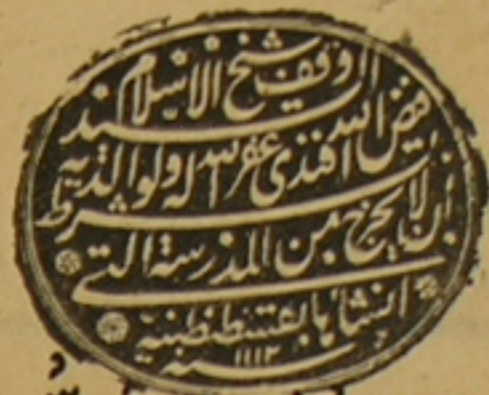 وقف شيخ الاسلام السيد
فيض الله افندى غفر الله له ولوالديه
بشرط ان لا يخرج من المدرسة التى
انشأها بقسطنطينية
سنه ١١١٢